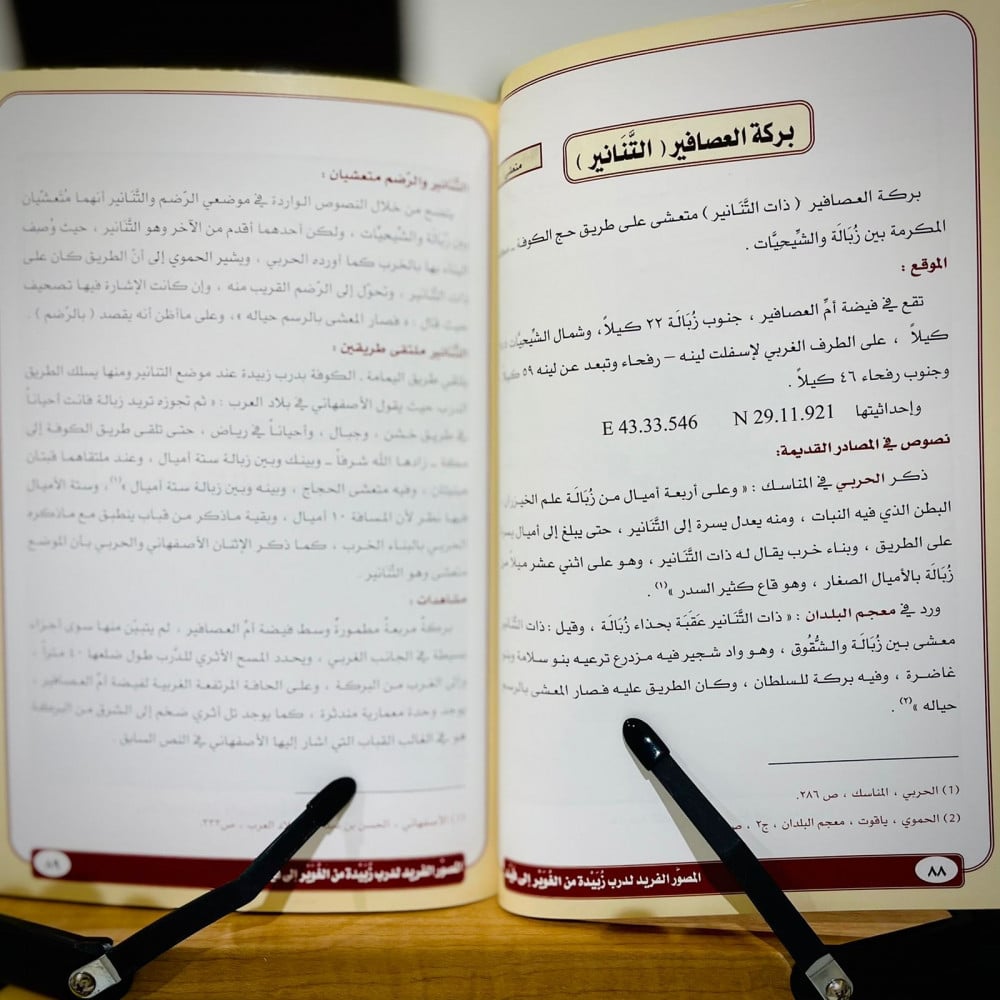 بركة العصافير ( التَّنَانير )
بركة العصافير ( ذات التَّنَانير ) متعشى على طريق حج الكوفة
المكرمة بين زُبَالَة والشِّيحيَّات .
الموقع :
تقع في فيضة أمِّ العصافير ، جنوب زُبَالَة ٢٢ كيلاً ، وشمال الشِّيحيَّات
كيلاً ، على الطرف الغربي لإسفلت لينه – رفحاء وتبعد عن لينه ٥٩
وجنوب رفحاء ٤٦ كيلاً .
وإحداثيتها N 29.11.921 E 43.33.546
نصوص في المصادر القديمة:
ذكر الحربي في المناسك : « وعلى أربعة أميال من زُبَالَة علم
البطن الذي فيه النبات ، ومنه يعدل يسرة إلى التَّنَانير ، حتى يبلغ إلى أميال
على الطريق ، وبناء خرب يقال له ذات التَّنَانير ، وهو على اثني عشر ميلاً
زُبَالَة بالأميال الصغار ، وهو قاع كثير السدر »(١) .
ورد في معجم البلدان : « ذات التَّنَانير عَقَبَة بحذاء زُبَالَة ، وقيل : ذات
معشى بين زُبَالَة والشُّقُوق ، وهو واد شجير فيه مزدرع ترعيه بنو سلامة
غاضرة ، وفيه بركة للسلطان ، وكان الطريق عليه فصار المعشى بالرسم
حياله »(٢) .
(1) الحربي ، المناسك ، ص ٢٨٦.
(2) الحموي ، ياقوت ، معجم البلدان ، ج٢ ،
٨٨ المصوّر الفريد لدرب زُبَيْدة من القُوَيْر إلى
التَّنانير والرّضم متعشيان :
يتضح من خلال النصوص الواردة في موضعي الرّضم والتَّنانير أنهما مُتَعشَّيان
بين زُبَالَة والشِّيحيَّات ، ولكن أحدهما أقدم من الآخر وهو التَّنانير ، حيث وُصف
البناء بها بالخرب كما أورده الحربي ، ويشير الحموي إلى أنّ الطريق كان على
ذات التَّنَانير ، وتحوّل إلى الرّضم القريب منه ، وإن كانت الإشارة فيها تصحيف
حيث قال : « فصار المعشى بالرسم حياله » ، وعلى ماأظن أنه يقصد ( بالرّضم ) .
التَّنانير ملتقى طريقين :
يلتقي طريق اليمامة . الكوفة بدرب زبيدة عند موضع التنانير ومنها يسلك الطريق
الدرب حيث يقول الأصفهاني في بلاد العرب : « ثم تجوزه تريد زبالة فانت أحياناً
في طريق خشن ، وجبال ، وأحياناً في رياض ، حتى تلقى طريق الكوفة إلى
مكة ـ زادها الله شرفاً ـ وبينك وبين زبالة ستة أميال ، وعند ملتقاهما قبتان
مبنيتان ، وفيه متعشى الحجاج ، وبينه وبين زبالة ستة أميال »(١) ، وستة الأميال
فيها نظر لأن المسافة ١٠ أميال ، وبقية ماذكر من قباب ينطبق مع ماذكره
الحربي بالبناء الخرب ، كما ذكر الإثنان الأصفهاني والحربي بأن الموضع
متعشى وهو التَّنانير .
مشاهدات :
بركةٌ مربعةٌ مطمورةٌ وسط فيضة أمّ العصافير ، لم يتبيّن منها سوى أجزاء
بسيطة في الجانب الغربي ، ويحدد المسح الأثري للدّرب طول ضلعها ٤٠ متراً ،
وإلى الغرب من البركة ، وعلى الحافة المرتفعة الغربية لفيضة أمّ العصافير ،
يوجد وحدة معمارية مندثرة ، كما يوجد تل أثري ضخم إلى الشرق من البركة
هو في الغالب القباب التي اشار إليها الأصفهاني في النص السابق .
(1) الأصفهاني ، الحسن بن العرب ، ص٣٣٣.
المصوّر الفريد لدرب زُبَيْدة من القُوَيْر إلى ٨٩